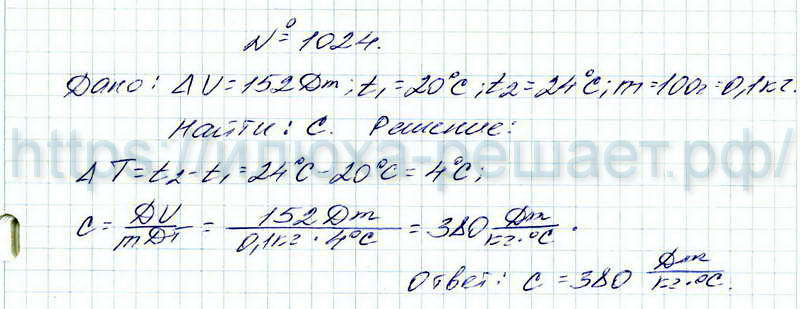 № 1024.
Дано: ΔU = 152 Дж; t₁ = 20°C; t₂ = 24°C; m = 100г = 0,1 кг.
Найти: C. Решение:
https://илюха-решает.рф/
ΔT = t₂ - t₁ = 24°C - 20°C = 4°C;
C = ΔU / mΔt = 152 Дж / 0,1 кг · 4°C = 380 Дж / кг·°C.
Ответ: C = 380 Дж / кг·°C.